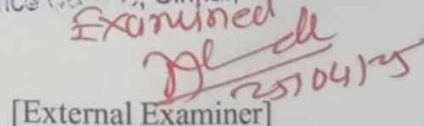 Examined
25/04/25
[External Examiner]